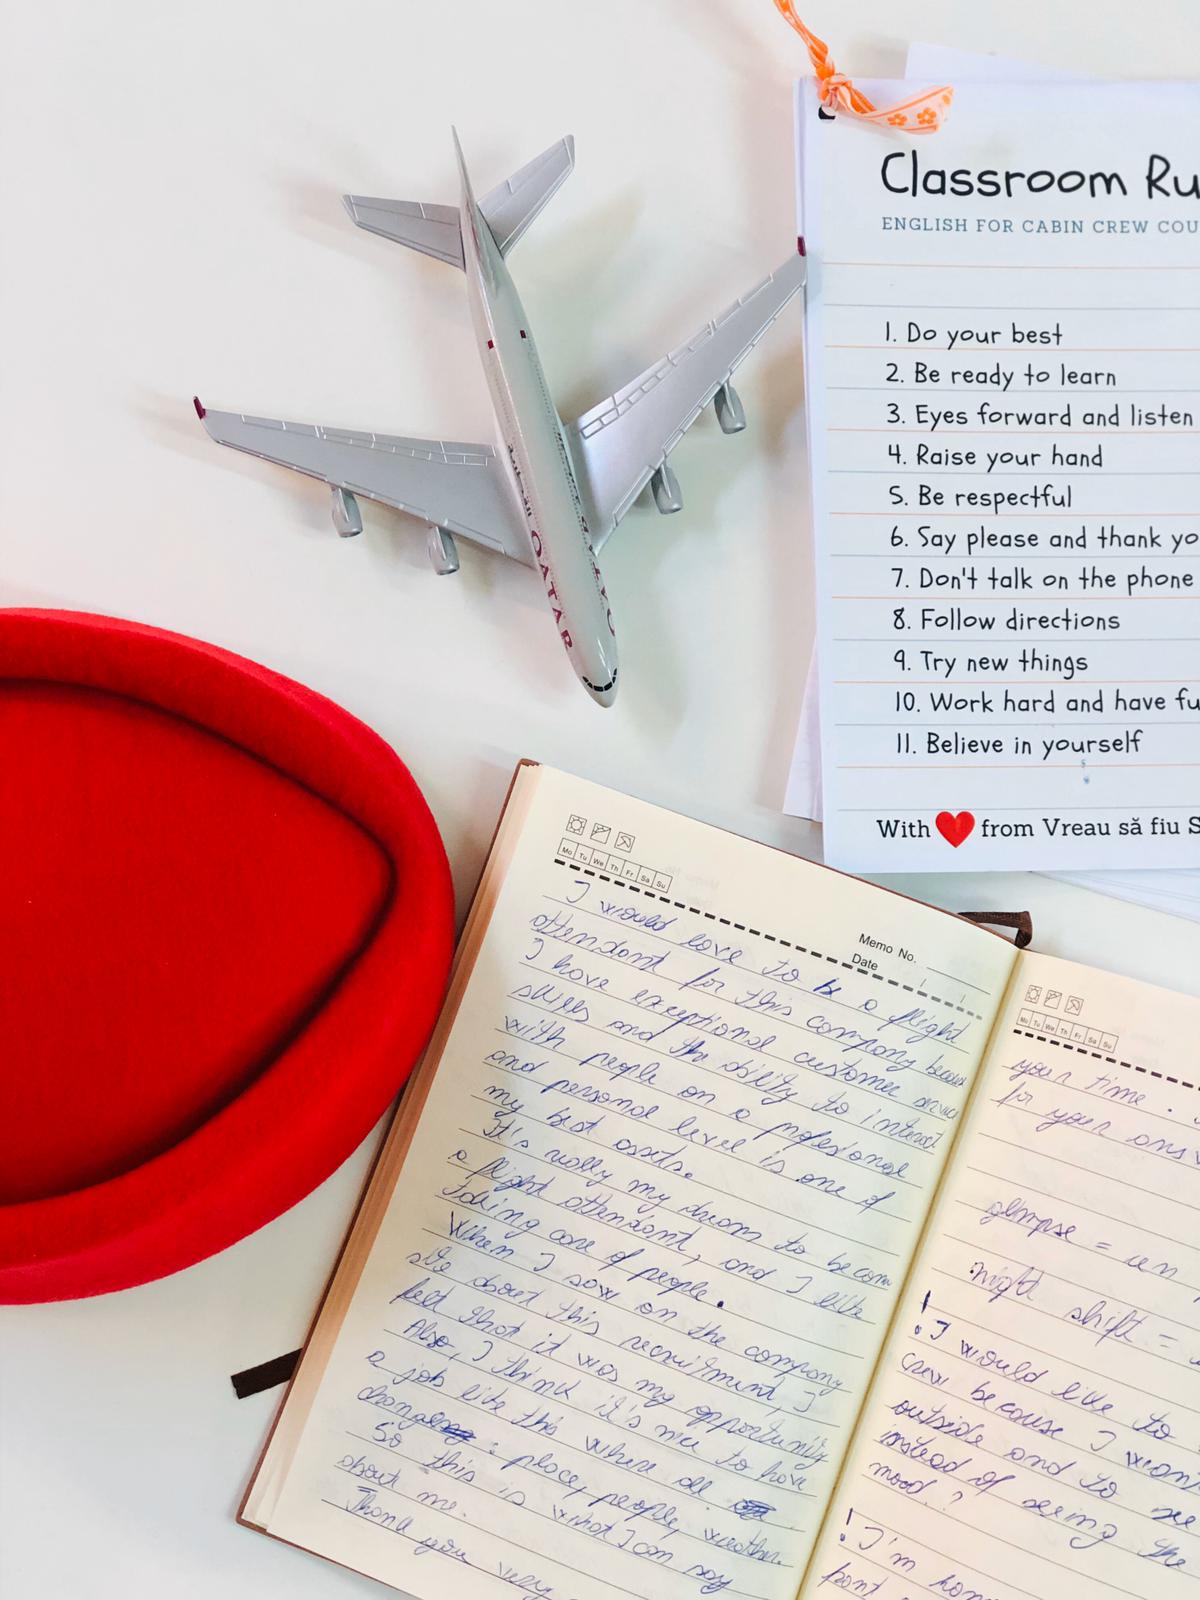 Classroom Ru
ENGLISH FOR CABIN CREW COU
1. Do your best
2. Be ready to learn
3. Eyes forward and listen
4. Raise your hand
5. Be respectful
6. Say please and thank yo
7. Don't talk on the phone
8. Follow directions
9. Try new things
10. Work hard and have fu
11. Believe in yourself
With ❤ from Vreau să fiu S
QATAR
Mo Tu We Th Fr Sa Su
Memo No.
Date
I would love to be a flight
attendant for this company because
I have exceptional customer service
skills and the ability to interact
with people on a profesional
and personal level is one of
my best assets.
It's really my dream to become
a flight attendant, and I like
taking care of people.
When I saw on the company
site about this recruitment, I
felt that it was my opportunity
Also, I think it's nice to have
a job like this where all
change : place, people, weather.
So this is what I can say
about me.
Thank you very
Mo Tu We Th Fr Sa Su
your time.
for your answ
glimpse = un
night shift =
! I would like to
crew because I want
outside and to see
instead of seeing the
mood?
! I'm